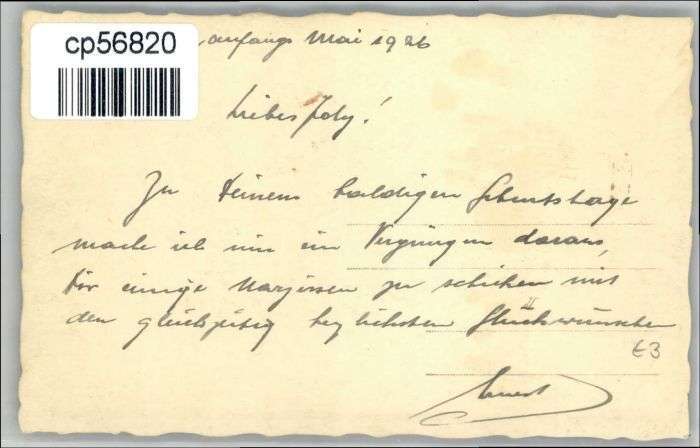 cp56820
, anfangs Mai 1926
Liebes Joly!
Zu Deinem baldigen Geburtstage
mache ich mir ein Vergnügen daraus,
Dir einige Narzissen zu schicken mit
den gleichzeitig herzlichsten Glückwünschen
€3